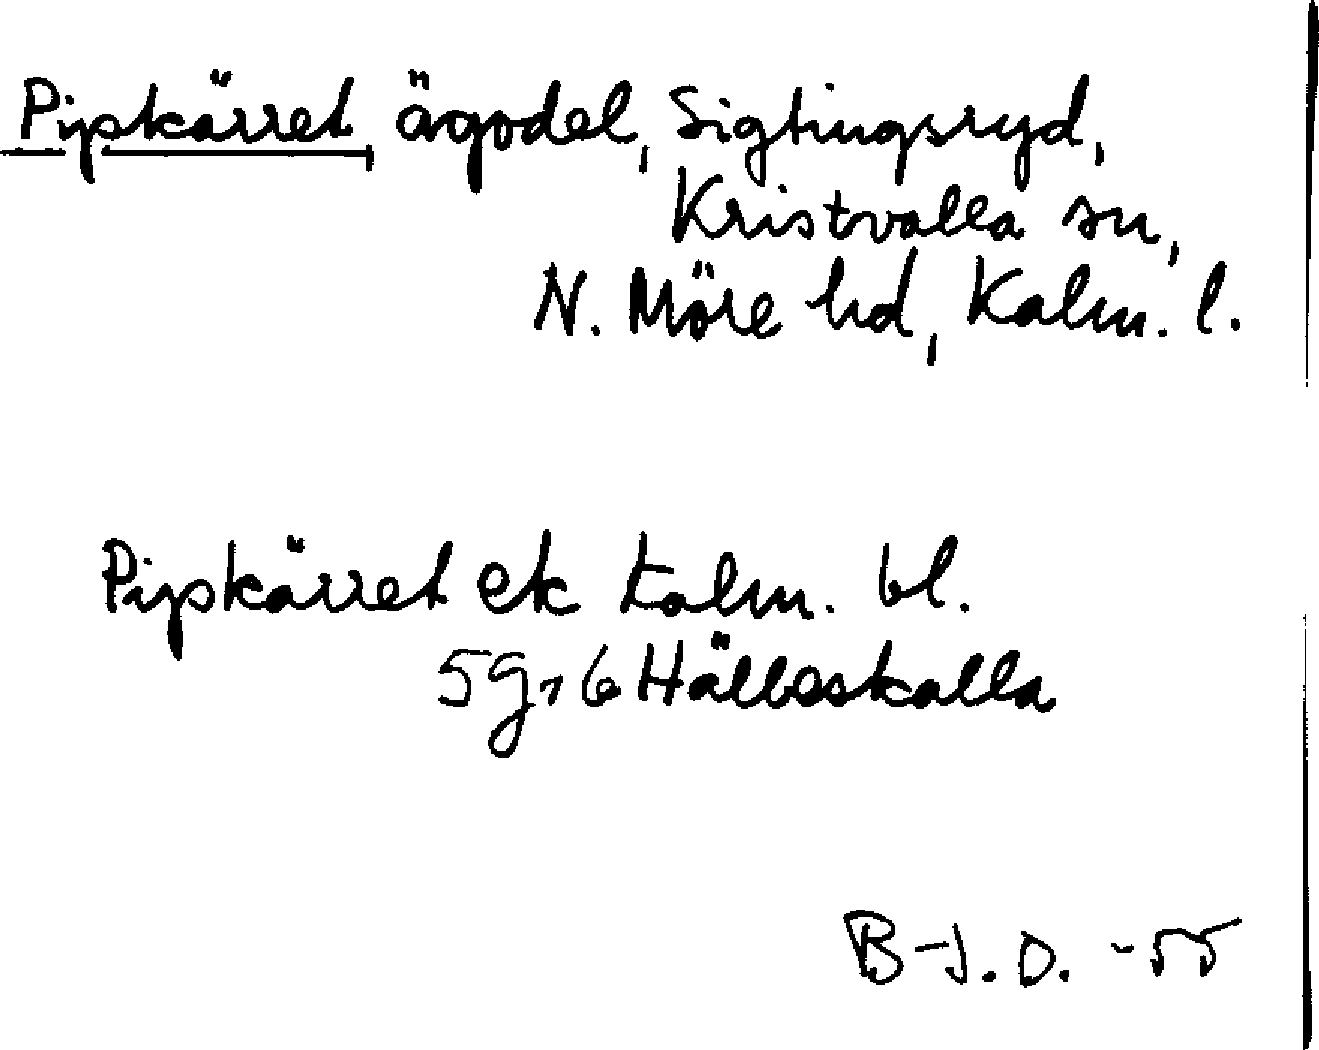 Pipkärret, ägodel, Sigtingsryd,
Kristvalla sn,
N. Möre hd, Kalm. l.
Pipkärret ek Kalm. bl.
5g, 6 Hälleskalla
B-J.O. -55